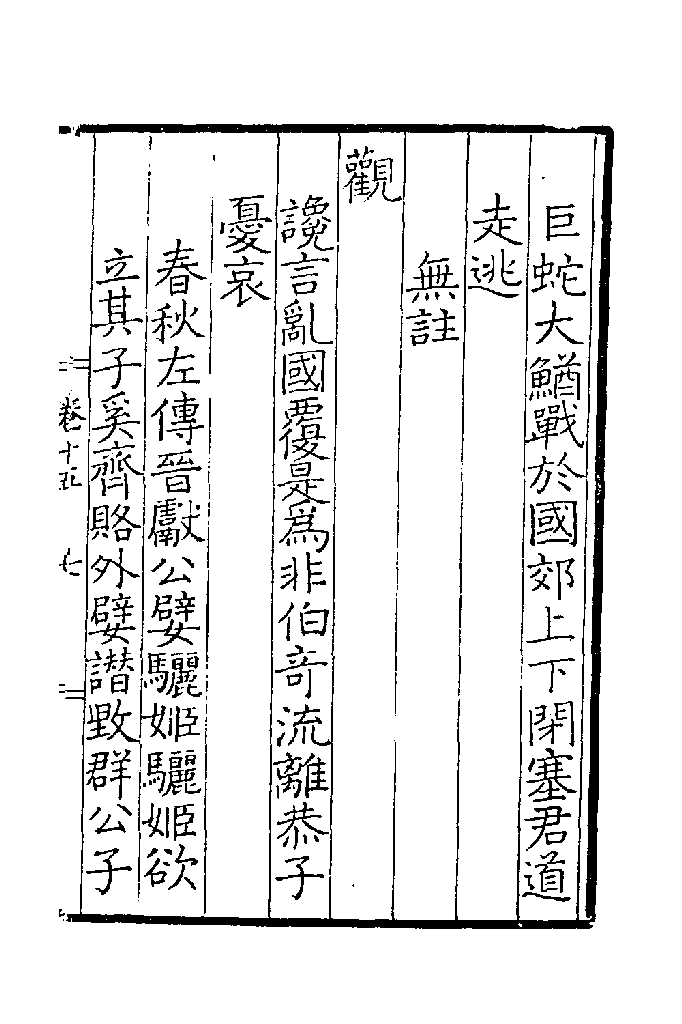 巨蛇大鰌戰於國郊上下閉塞君道
走逃
無註
觀
讒言亂國覆是爲非伯奇流離恭子
憂哀
春秋左傳晉獻公嬖驪姬驪姬欲
立其子奚齊賂外嬖譖斁群公子
卷十五 七